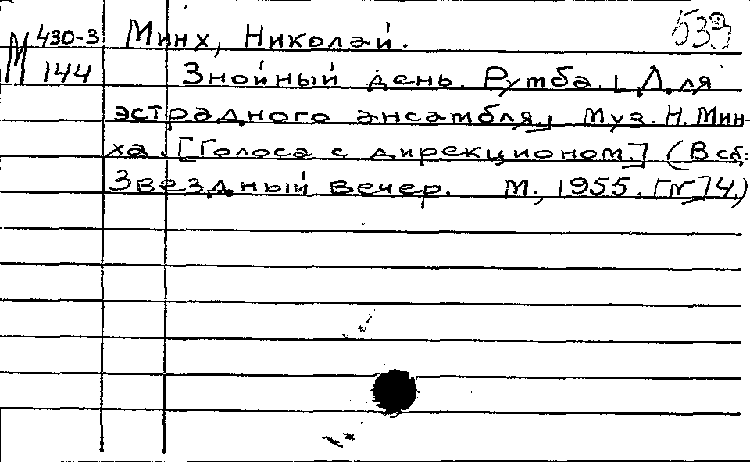 М 430-3 Минх, Николай. 533
144 Знойный день. Румба. [Для
эстрадного ансамбля] Муз. Н. Мин-
ха. [Голоса с дирекционом.] (В сб.:
Звездный вечер. М., 1955. [№]4.)